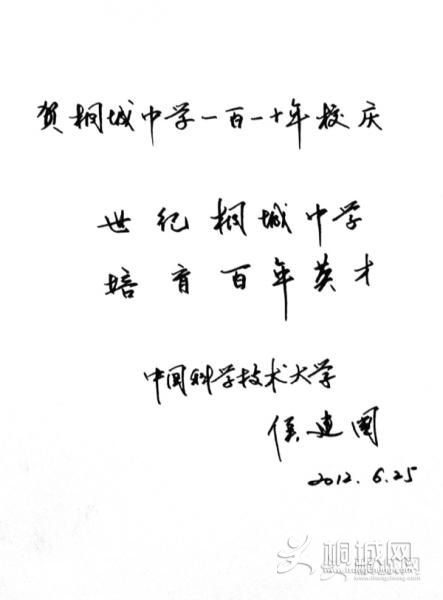 贺桐城中学一百一十年校庆
世纪桐城中学
培育百年英才
中国科学技术大学
侯建国
2012.6.25
桐城网